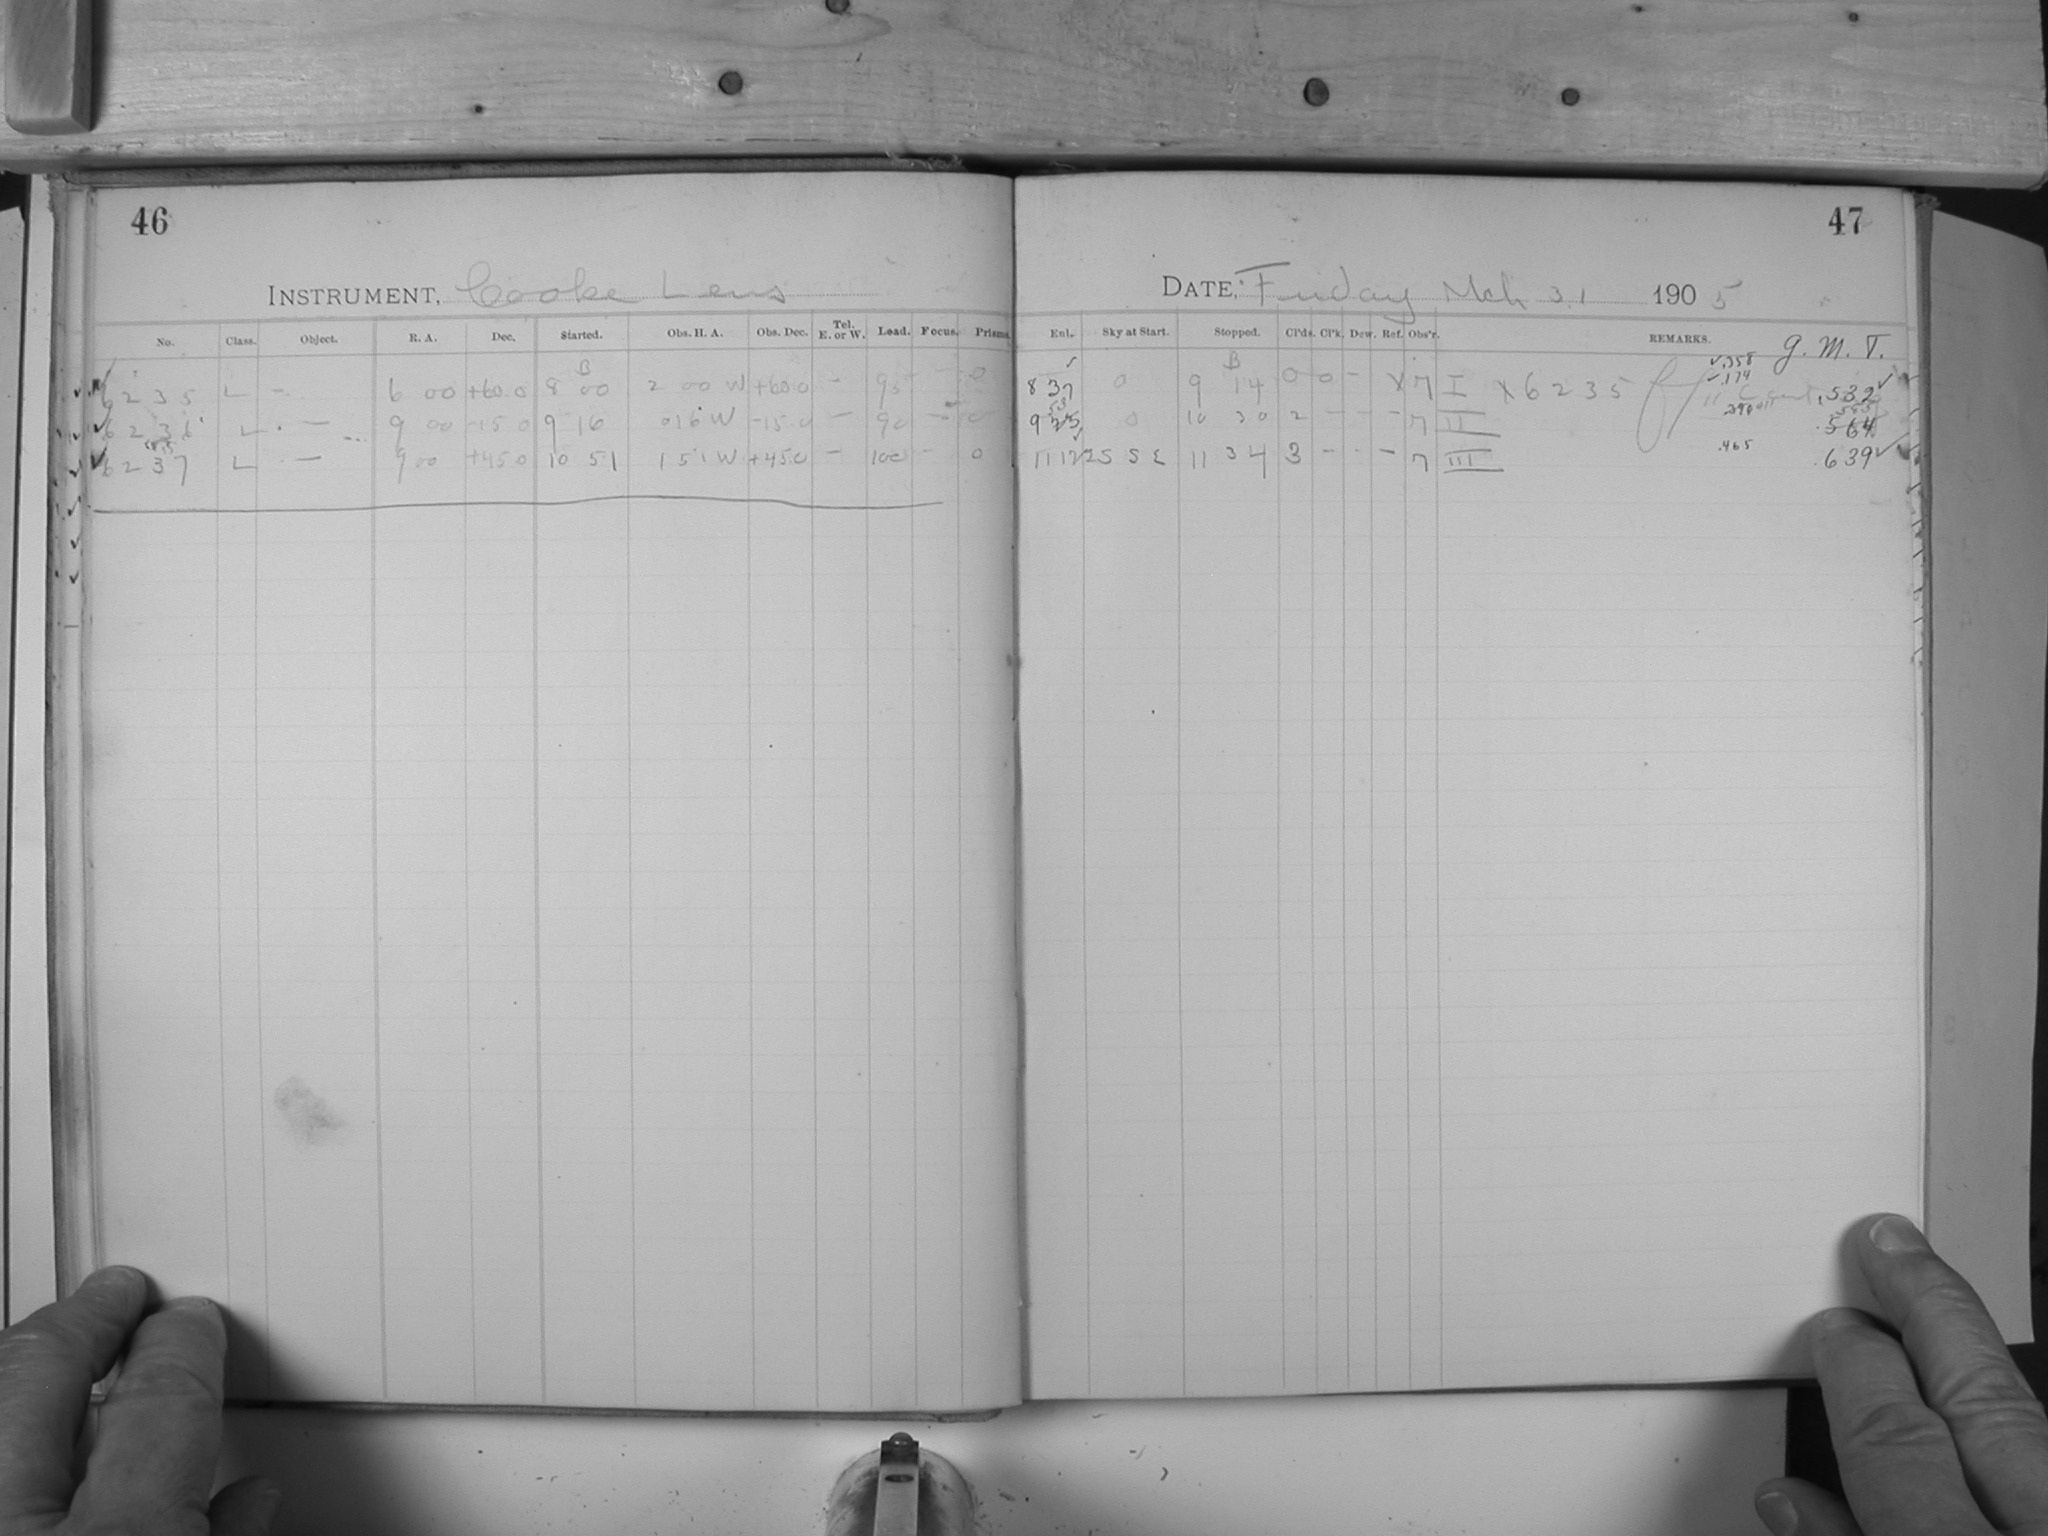 46
INSTRUMENT, Cooke Lens
No. Class. Object. R. A. Dec. Started. Obs. H. A. Obs. Dec. Tel. E. or W. Lead. Focus. Prisms
B
6235 L - 6 00 +60.0 8 00 2 00 W +60.0 - 90 - 0
6236 L - 9 00 -15.0 9 16 0 16 W -15.0 - 90 - 0
6237 L - 9 00 +45.0 10 51 1 51 W +45.0 - 100 - 0
47
DATE, Friday Mch 31 1905
Enl. Sky at Start. Stopped. Cl'ds. Cl'k. Dew. Ref. Obs'r. REMARKS. G. M. T.
B .358
.174
8 37 0 9 14 0 0 - X 7 I X 6235 .532
53
9 0 10 30 2 - - - 7 II .390 .564
11 12 25 S E 11 34 3 - - - 7 III .465 .639